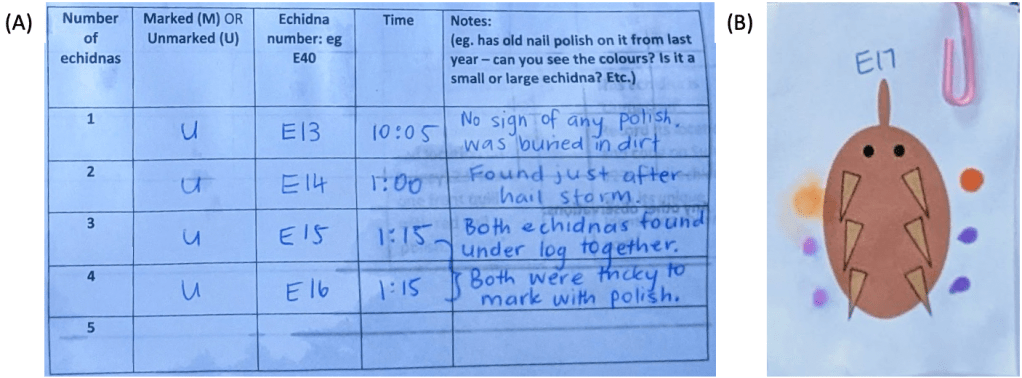 (A)
Number of echidnas
Marked (M) OR Unmarked (U)
Echidna number: eg E40
Time
Notes:
(eg. has old nail polish on it from last
year – can you see the colours? Is it a
small or large echidna? Etc.)
1 U E13 10:05 No sign of any polish.
was buried in dirt
2 U E14 1:00 Found just after
hail storm.
3 U E15 1:15 Both echidnas found
under log together.
4 U E16 1:15 Both were tricky to
mark with polish.
5
(B)
E17